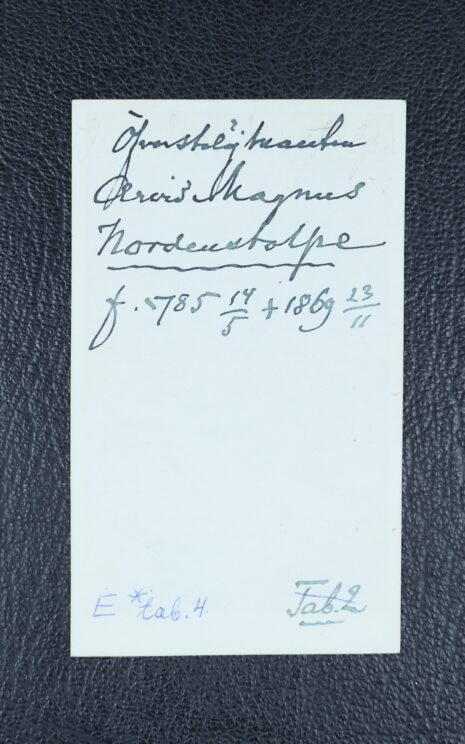 Öfverstelöjtnanten
Arvid Magnus
Nordenstolpe
f. 1785 14/5 + 1869 23/11
E * tab. 4
Tab. 2